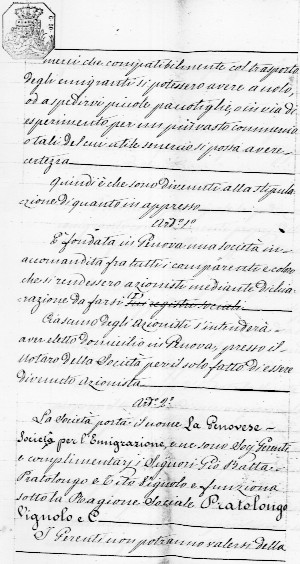 meni che compatibilmente col trasporto
degli emigranti si potessero avere a nolo,
od a spedirvi piccole pacotiglie, o in via di
esperimento per un più vasto commercio
o tali del cui utile servizio si possa avere
certezza
Quindi è che sono divenuti alla stipula-
zione di quanto in appresso
Art.° 1°
È fondata in Genova una società in
accomandita fra tutti i comparenti e coloro
che si rendessero azionisti mediante dichia-
razione da farsi sui registri sociali
Ciascuno degli Azionisti s'intenderà
aver eletto domicilio in Genova, presso il
Notaro della Società per il solo fatto di essere
divenuto Azionista
Art.° 2°
La Società porta il nome La Genovese-
Società per l'Emigrazione, e ne sono Soci Gerenti
e complimentarj i Signori Gio Batta
Pratolongo e Tito Vignolo e funziona
sotto la Ragione Sociale Pratolongo
Vignolo e C.
I Gerenti non potranno valersi della